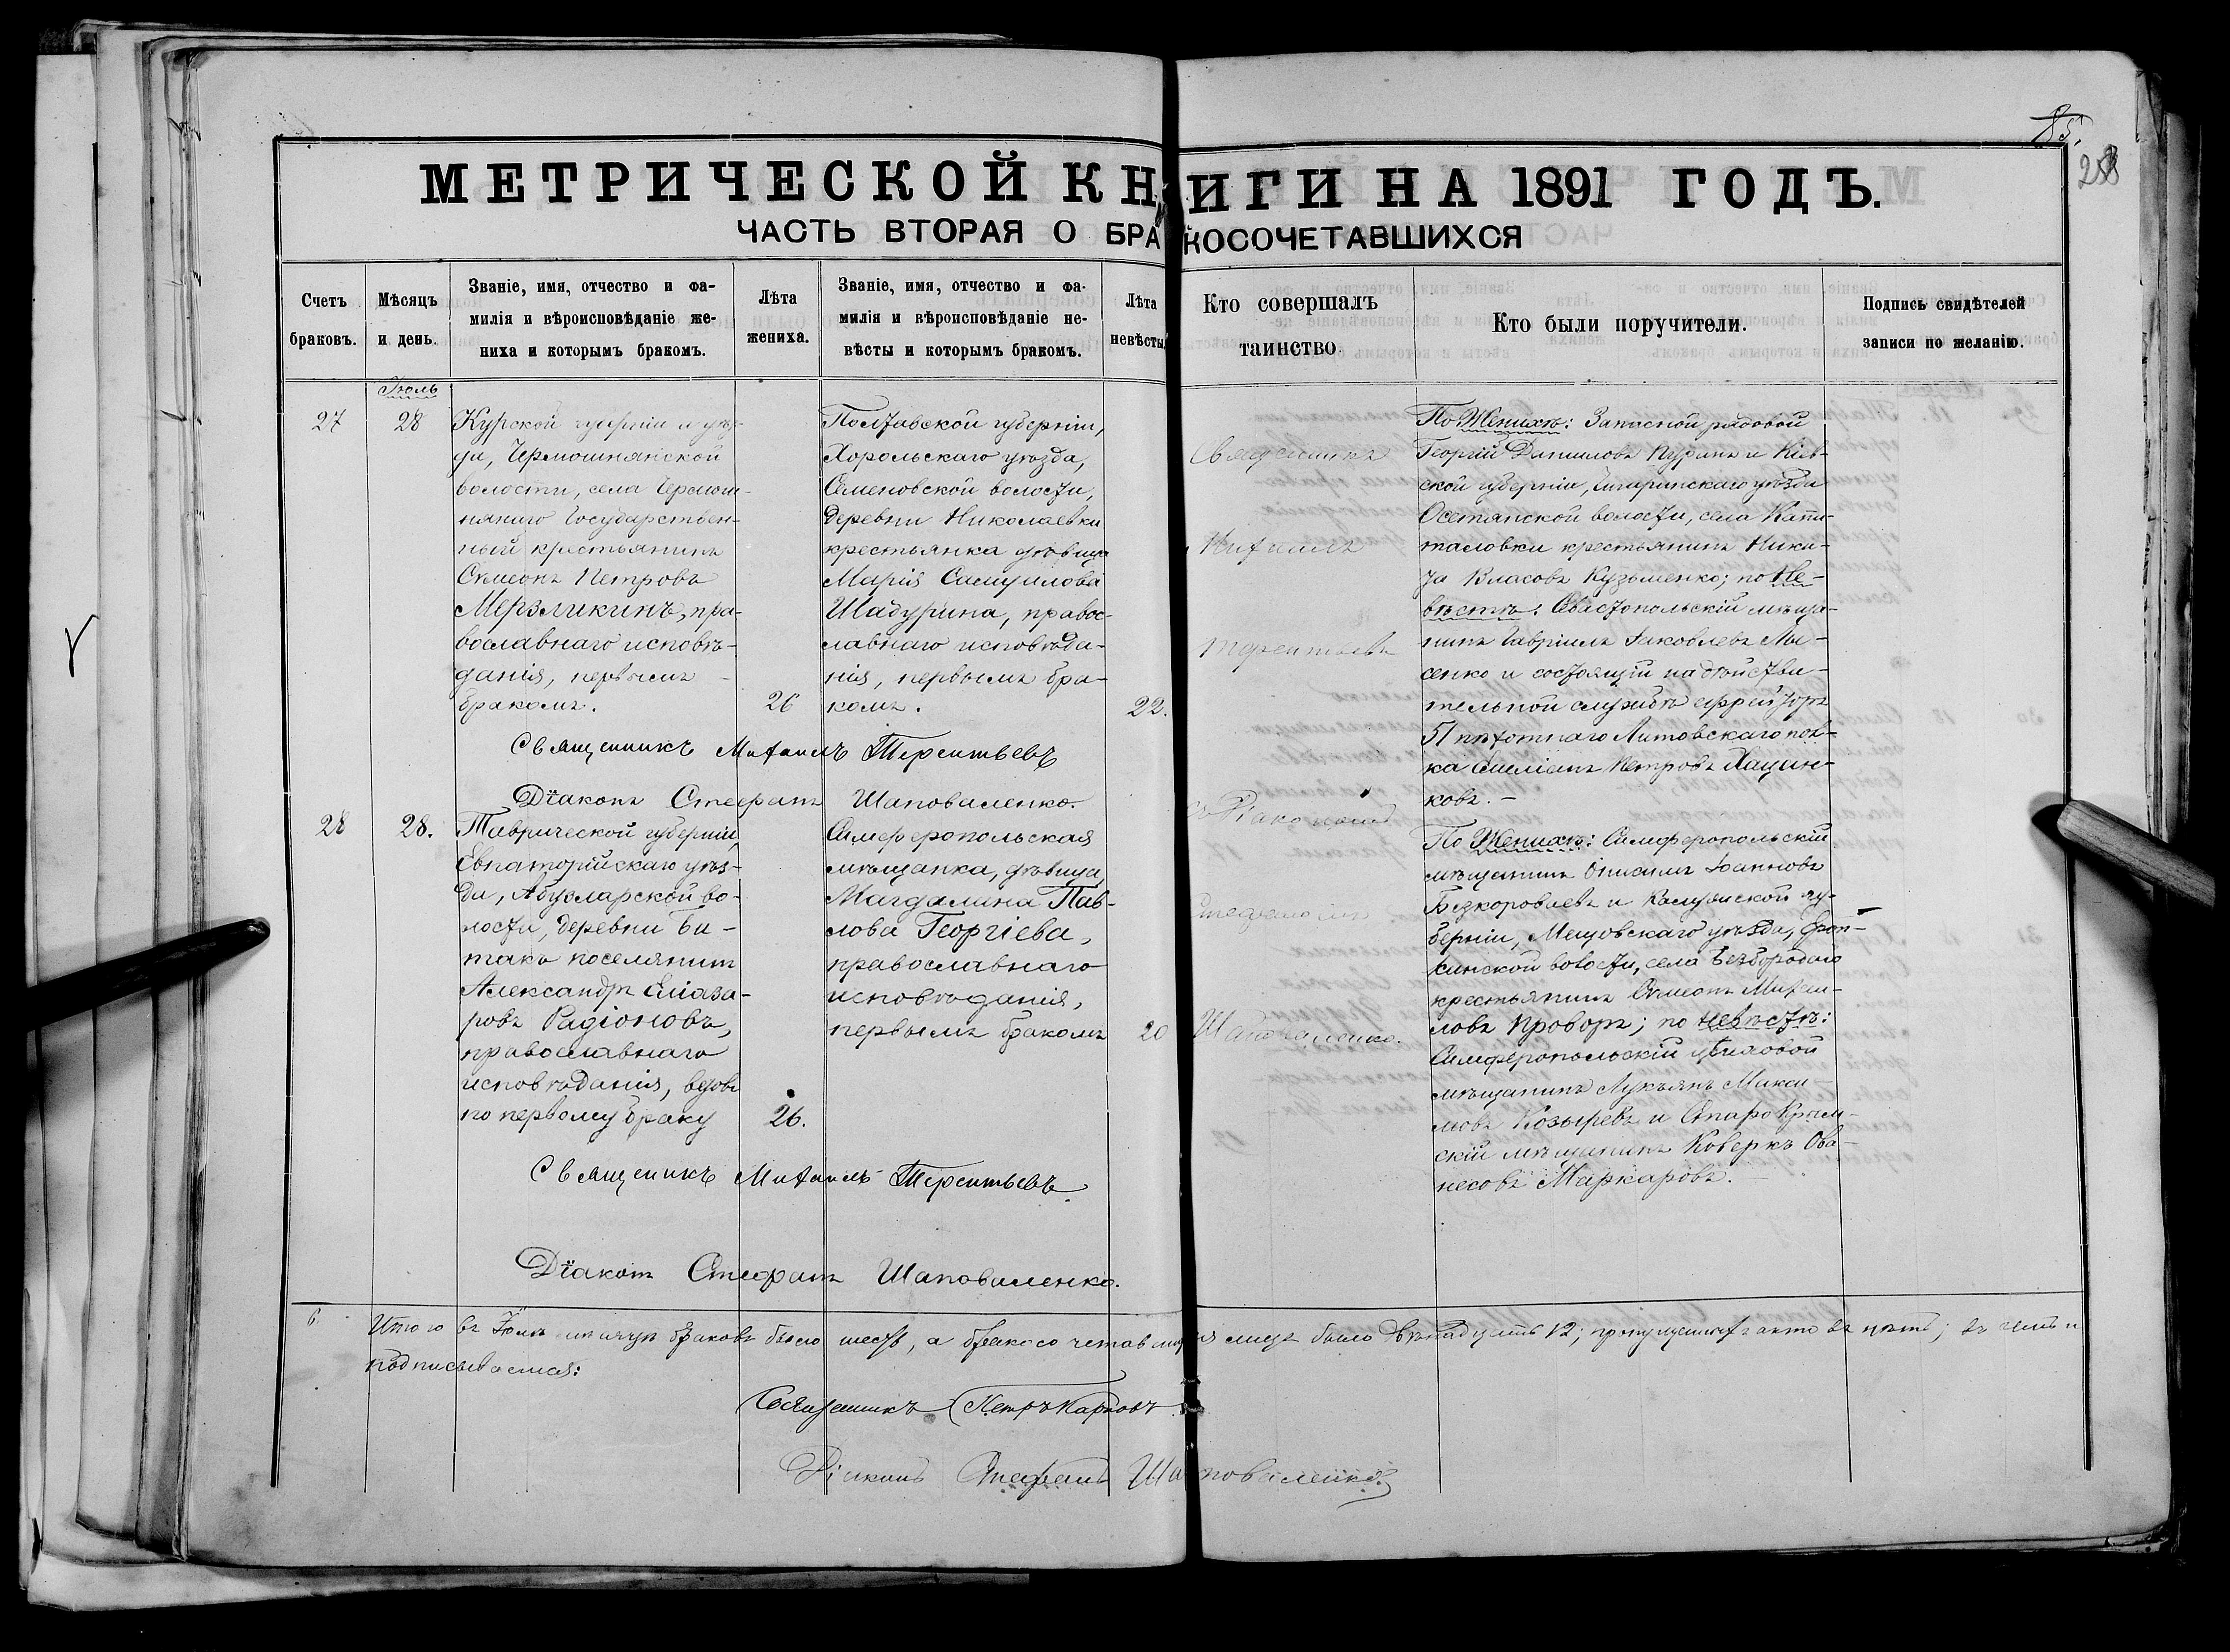 85.
МЕТРИЧЕСКОЙ КНИГИ НА 1891 ГОДЪ.
ЧАСТЬ ВТОРАЯ О БРАКОСОЧЕТАВШИХСЯ
Счетъ браковъ.
Мѣсяцъ и день.
Званіе, имя, отчество и фа-
милія и вѣроисповѣданіе же-
ниха и которымъ бракомъ.
Лѣта жениха.
Званіе, имя, отчество и фа-
милія и вѣроисповѣданіе не-
вѣсты и которымъ бракомъ.
Лѣта невѣсты.
Кто совершалъ
таинство.
Кто были поручители.
Подпись свидѣтелей
записи по желанію.
Іюль
27
28
Курской губерніи и уѣз-
да, Чермошнянской
волости, села Чермош-
няниго Государствен-
ный крестьянинъ
Сѵмеонъ Петровъ
Мерзликинъ, пра-
вославнаго исповѣ-
данія, первымъ
бракомъ.
26
Полтавской губерніи,
Хорольскаго уѣзда,
Семеновской волости,
деревни Николаевки
крестьянка дѣвица
Марія Самуилова
Шадурина, правос-
лавнаго исповѣда-
нія, первымъ бра-
комъ.
22.
Священникъ
Михаилъ
Терентьевъ
По Женихѣ: Запасной рядовой
Георгій Даниловъ и Кіев-
ской губерніи, Чигиринскаго уѣзда
Осетянской волости, села Капи-
таловки крестьянинъ Ники-
та Власовъ Кузьменко; по Не-
вѣстѣ: Севастопольскій мѣща-
нинъ Гавріилъ Іаковлевъ Лы-
сенко и состоящій на дѣйстви-
тельной службѣ ефрейторъ
51 пѣхотнаго Литовскаго пол-
ка Емеліанъ Петровъ Хацин-
ковъ. —
Священникъ Михаилъ Терентьевъ
Діаконъ Стефанъ Шаповаленко.
28
28.
Таврической губерніи,
Евпаторійскаго уѣз-
да, Абузларской во-
лости, деревни Би-
такъ поселянинъ
Александръ Еліаза-
ровъ Радіоновъ,
православнаго
исповѣданія, вдовъ
по первому браку
26.
Симферопольская
мѣщанка, дѣвица,
Магдалина Пав-
лова Георгіева,
православнаго
исповѣданія,
первымъ бракомъ
20
съ Діакономъ
Стефаномъ
Шаповаленко.
По Женихѣ: Симферопольскій
мѣщанинъ Іоанновъ
Безкороваевъ и Калужской гу-
берніи, Мещовскаго уѣзда,
синской волости, села Безбородаго
крестьянинъ Сѵмеонъ Михаи-
ловъ Проворъ; по невѣстѣ:
Симферопольскій цѣховой
мѣщанинъ Лукьянъ Макси-
мовъ Козыревъ и Старокрым-
скій мѣщанинъ Коверкъ Ова-
несовъ Маркаровъ. —
Священникъ Михаилъ Терентьевъ.
Діаконъ Стефанъ Шаповаленко.
6. Итого въ Іюлѣ мѣсяцѣ браковъ было шесть, а бракосочетавшихся лицъ было двѣнадцать 12; актовъ нѣтъ; въ чемъ и
подписываемся:
Священникъ Петръ Карповъ
Діаконъ Стефанъ Шаповаленко